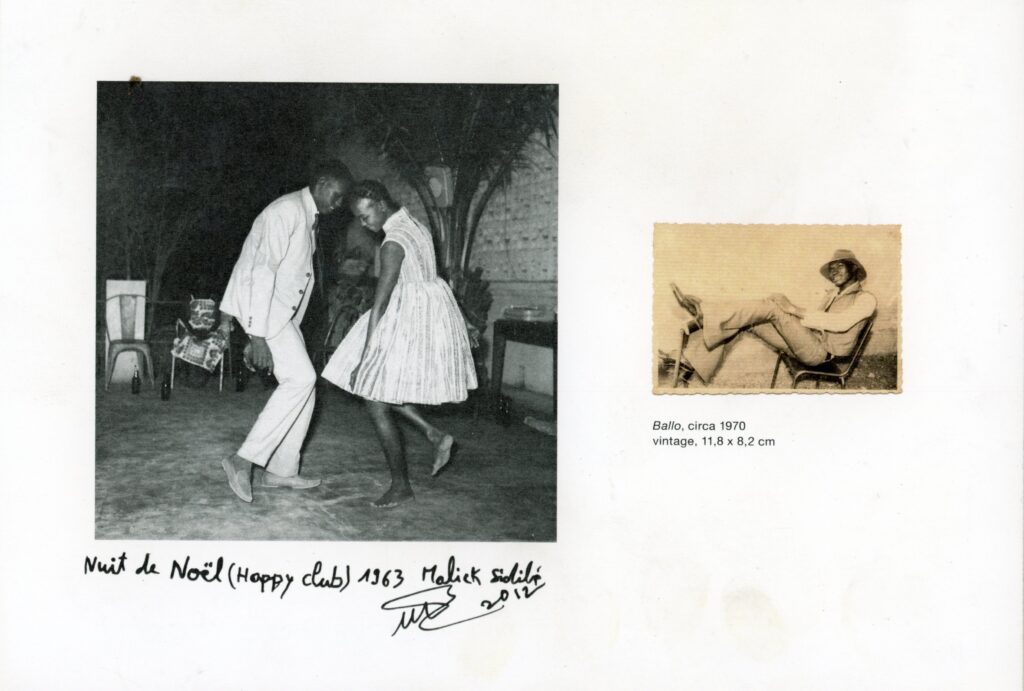 Nuit de Noël (Happy club) 1963 Malick Sidibé
2012
Ballo, circa 1970
vintage, 11,8 x 8,2 cm